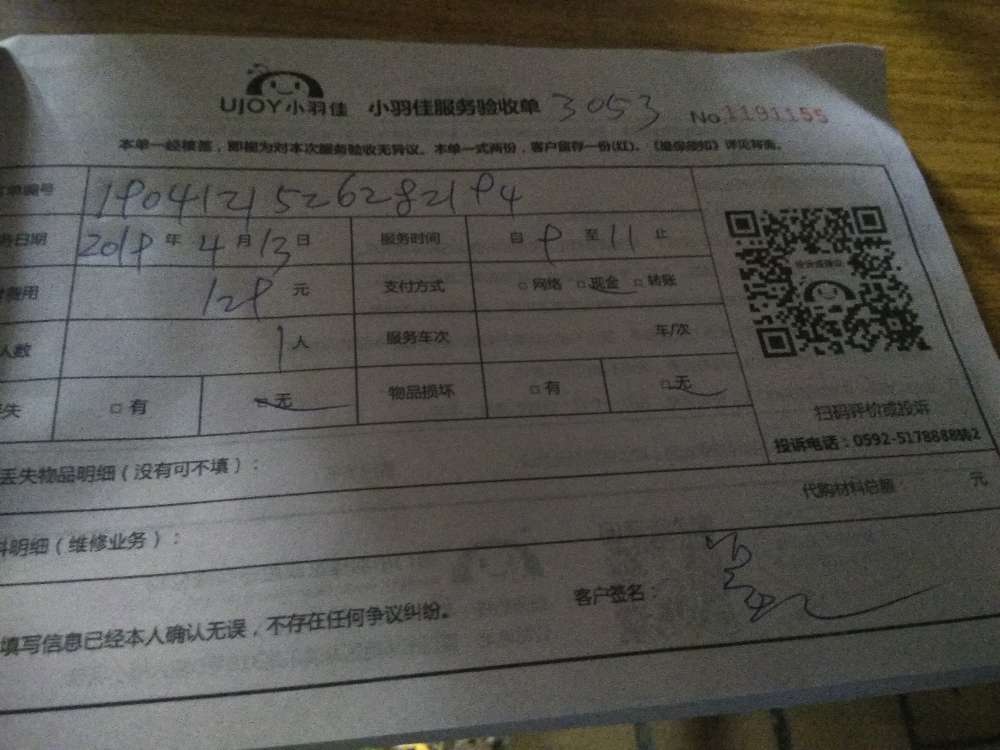 UJOY小羽佳 小羽佳服务验收单 3053 No.1191155
本单一经核签，即视为对本次服务验收无异议。本单一式两份，客户留存一份(红)。
单编号 1904121526282194
日期 2019 年 4 月 13 日 服务时间 自 9 至 11 止
费用 129 元 支付方式 □ 网络 □ 现金 □ 转账
人数 1 人 服务车次 车/次
失 □ 有 □ 无 物品损坏 □ 有 □ 无
扫码评价或投诉
投诉电话：0592-5178888转2
丢失物品明细（没有可不填）：
代购材料总额 元
料明细（维修业务）：
客户签名：
填写信息已经本人确认无误，不存在任何争议纠纷。